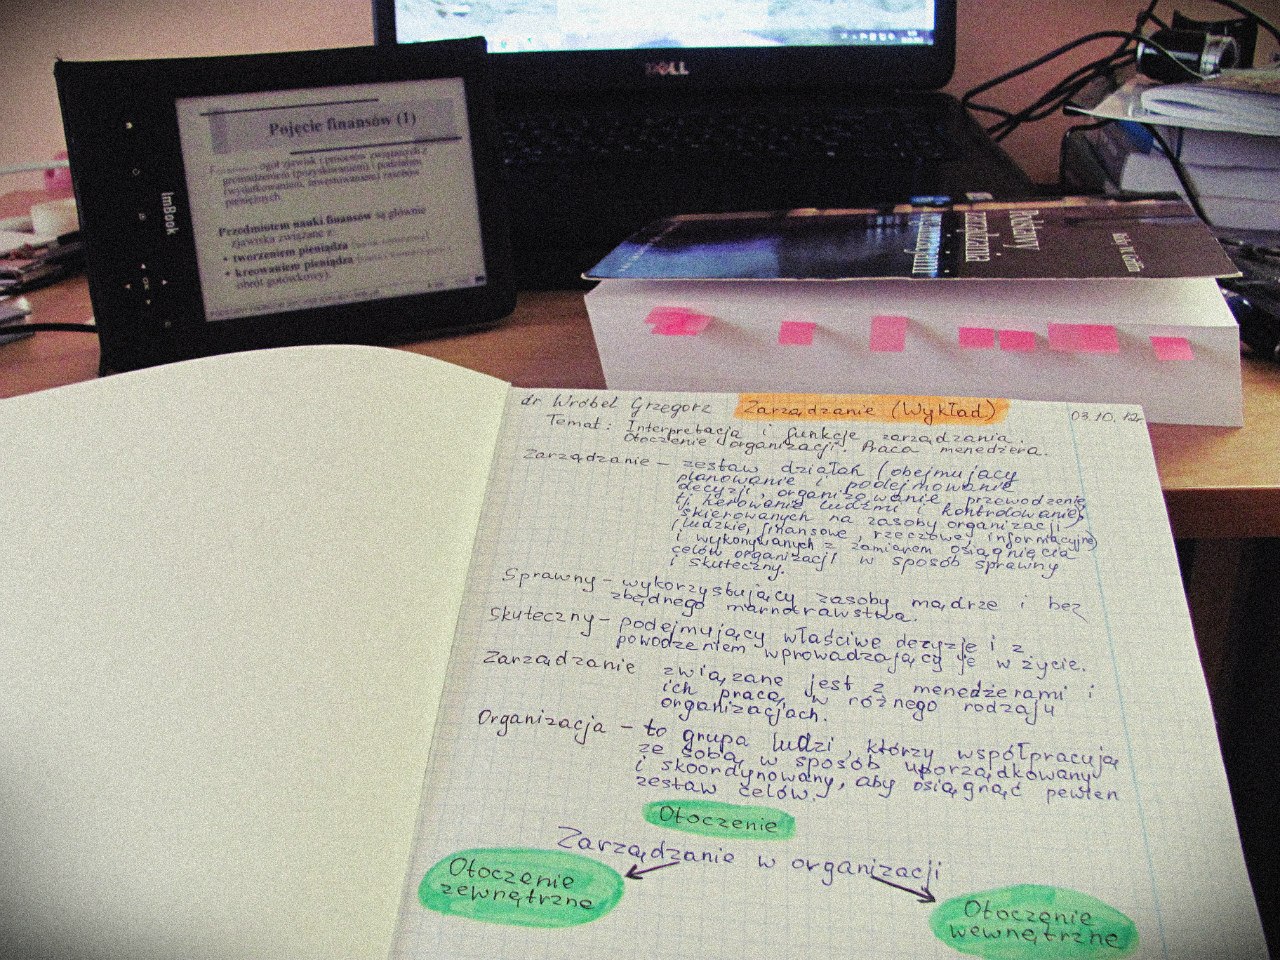 DELL
Pojęcie finansów (1)
ogół zjawisk i procesów związanych z
pieniężnych.
Przedmiotem nauki finansów są głównie
zjawiska związane z:
• tworzeniem pieniądza
• kreowaniem pieniądza
obrót gotówkowy).
ImBook
OK
Podstawy
zarządzania
organizacjami
dr Wróbel Grzegorz Zarządzanie (Wykład) 03.10.12r
Temat: Interpretacja i funkcje zarządzania.
Otoczenie organizacji. Praca menedżera.
Zarządzanie – zestaw działań (obejmujący
planowanie i podejmowanie
decyzji, organizowanie przewodzenie,
tj. kierowanie ludźmi i kontrolowanie)
skierowanych na zasoby organizacji
(ludzkie, finansowe, rzeczowe, informacyjne)
i wykonywanych z zamiarem osiągnięcia
celów organizacji w sposób sprawny
i skuteczny.
Sprawny – wykorzystujący zasoby mądrze i bez
zbędnego marnotrawstwa.
Skuteczny – podejmujący właściwe decyzje i z
powodzeniem wprowadzający je w życie.
Zarządzanie związane jest z menedżerami i
ich pracą w różnego rodzaju
organizacjach.
Organizacja – to grupa ludzi, którzy współpracują
ze sobą w sposób uporządkowany
i skoordynowany, aby osiągnąć pewien
zestaw celów.
Otoczenie
Zarządzanie w organizacji
Otoczenie
zewnętrzne
Otoczenie
wewnętrzne